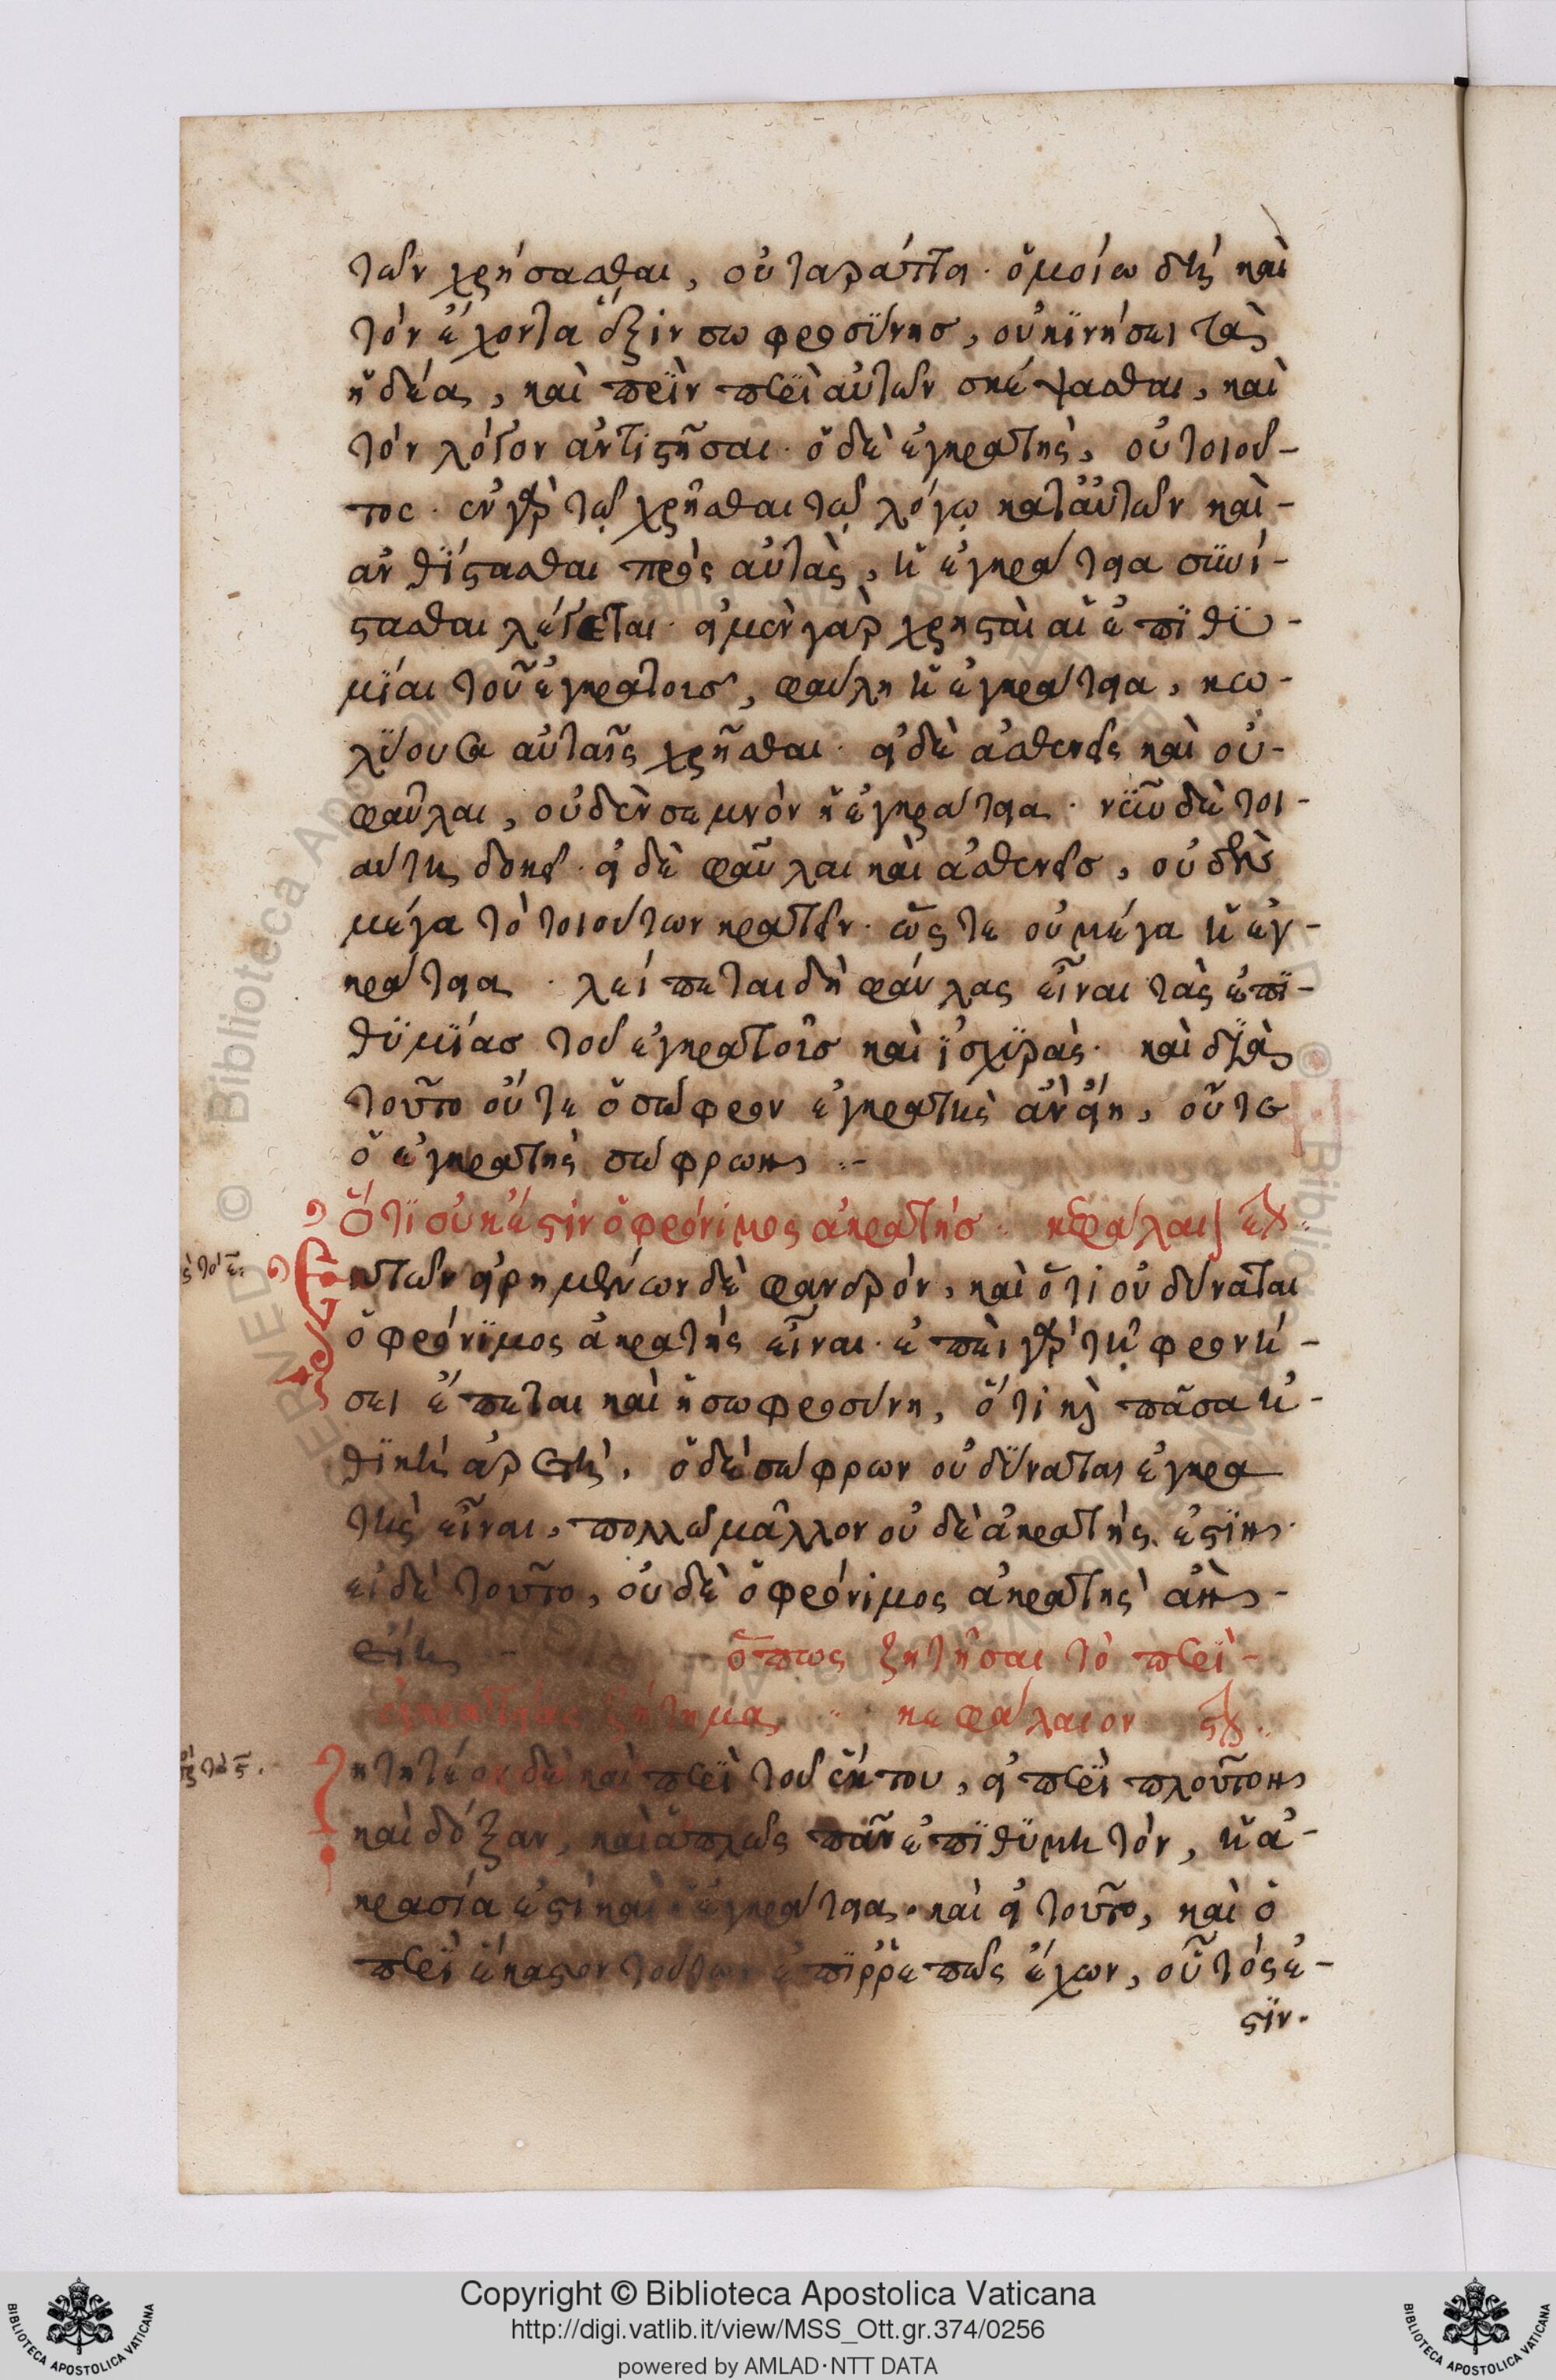 τῶν χρήσασθαι, οὐ ταράττει· ὁμοίω δὴ καὶ
τὸν ἔχοντα ἕξιν σωφροσύνησ, οὐ κϊνήσει τὰς
ἡδέα, καὶ πρὶν περὶ αὐτῶν σκέψασθαι, καὶ
τὸν λόγον ἀντιστῆσαι· ὁ δὲ ἐγκρατὴς, οὐ τοιοῦ-
τος· ἐν γὰρ τῷ χρῆσθαι τῷ λόγῳ κατ' αὐτῶν καὶ-
ἀνθίστασθαι πρὸς αὐτὰς, ἡ ἐγκράτεια συνί-
στασθαι λέγεται· εἰ μὲν γὰρ χρησταὶ αἱ ἐπιθυ-
μίαι τοῦ ἐγκρατοισ, φαύλη ἡ ἐγκράτεια, κω-
λύουσα αὐταῖς χρῆσθαι· εἰ δὲ ἀσθενεῖς καὶ οὐ-
φαῦλαι, οὐδὲν σεμνὸν ἡ ἐγκράτεια· νῦν δὲ τοι-
αύτη δοκεῖ· εἰ δὲ φαῦλαι καὶ ἀσθενεῖσ, οὐδὲν
μέγα τὸ τοιούτων κρατεῖν· ὥστε οὐ μέγα ἡ ἐγ-
κράτεια· λείπεται δὴ φαύλας εἶναι τὰς ἐπι-
θυμίασ τοῦ ἐγκρατοῖσ καὶ ἰσχυρὰς· καὶ διὰ
τοῦτο οὔτε ὁ σώφρον ἐγκρατὴς ἂν εἴη, οὔτε
ὁ ἐγκρατὴς σώφρων :-
Ὅτι οὐκ ἔστιν ὁ φρόνιμος ἀκρατήσ· κεφάλαιον εον·
ς τὸ ε
εκ τῶν εἰρημένων δὲ φανερὸν, καὶ ὅτι οὐ δύναται
ὁ φρόνιμος ἀκρατὴς εἶναι· ἐπεὶ γὰρ τῇ φρονή-
σει ἕπεται καὶ ἡ σωφροσύνη, ὅτι καὶ πᾶσα ἠ-
θικὴ ἀρετὴ, ὁ δὲ σώφρων οὐ δύναται ἐγκρα
τὴς εἶναι, πολλῶ μᾶλλον οὐ δὲ ἀκρατής ἐστιν·
εἰ δὲ τοῦτο, οὐ δὲ ὁ φρόνιμος ἀκρατὴς ἂν-
εἴη -
ὅπως ζητῆσαι τὸ περὶ-
ἐγκρατείας ζήτημα, κεφάλαιον ςον·
τὸ ς.
Ζητητέον δὲ καὶ περὶ τοῦ ἑήτου, εἰ περὶ πλοῦτον
καὶ δόξαν, καὶ ἁπλῶς πᾶν ἐπιθυμητὸν, ἡ ἀ-
κρασία ἐστὶ καὶ ἡ ἐγκράτεια. καὶ εἰ τοῦτο, καὶ ὁ
περὶ ἕκαστον τούτων ἐπιρρεπῶς ἔχων, οὗτός ἐ-
στιν.
Copyright © Biblioteca Apostolica Vaticana
http://digi.vatlib.it/view/MSS_Ott.gr.374/0256
powered by AMLAD·NTT DATA